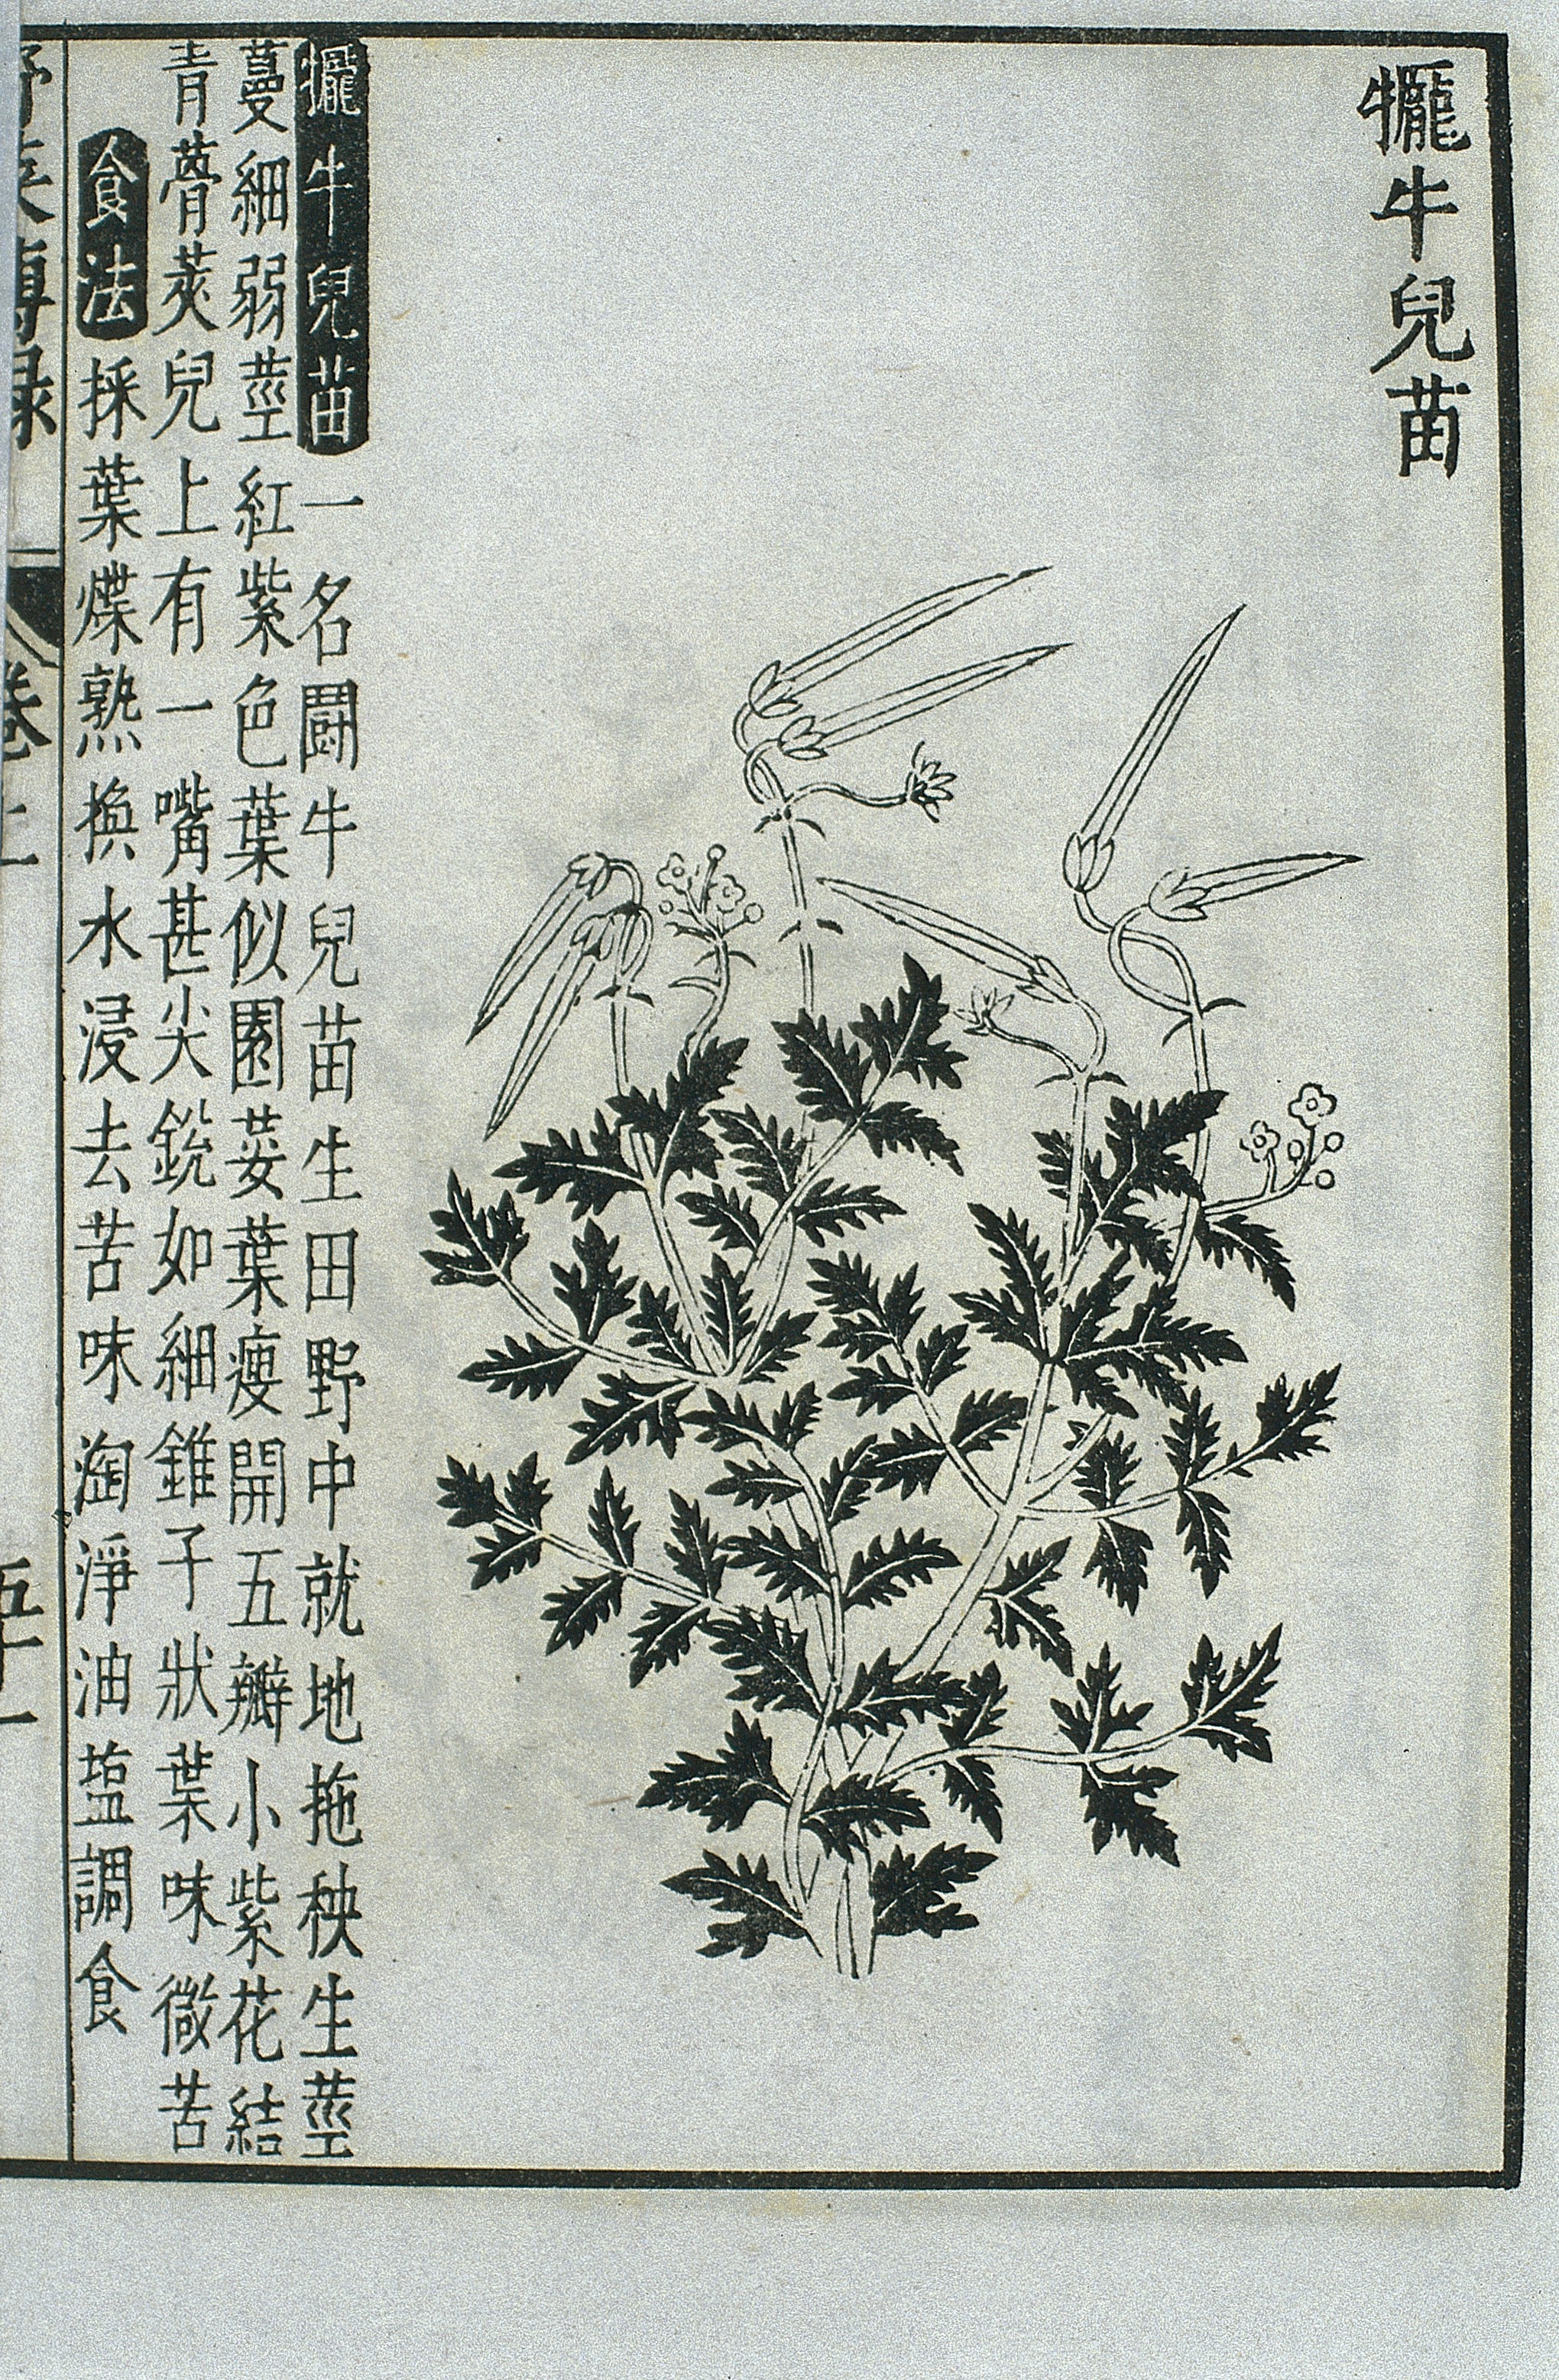 牻牛兒苗
牻牛兒苗一名鬪牛兒苗生田野中就地拖秧生莖
蔓細弱莖紅紫色葉似園荽葉瘦開五瓣小紫花結
青蓇葖兒上有一嘴甚尖銳如細錐子狀葉味微苦
食法採葉煠熟換水浸去苦味淘淨油塩調食
野菜博録 卷上 五十一